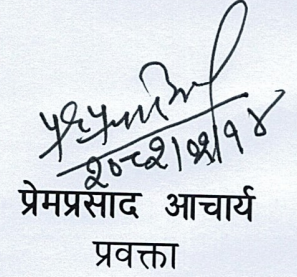 २०८२|०९|१४
प्रेमप्रसाद आचार्य
प्रवक्ता